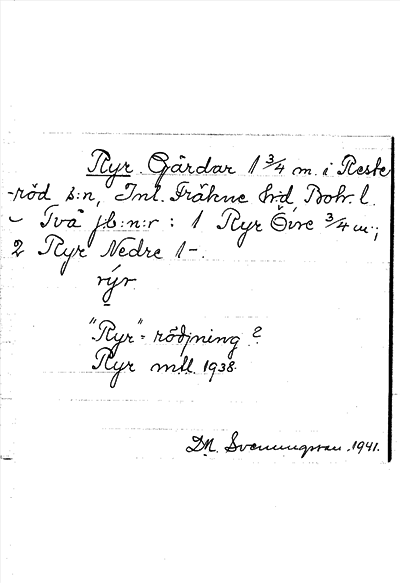 Ryr. Gårdar 1 3/4 m. i Reste
-röd s:n, Inl. Fräkne h:d, Boh. l.
– Två jb:n:r : 1 Ryr Övre 3/4 m.;
2 Ryr Nedre 1 –.
rýr
"Ryr" = rödjning?
Ryr mtl. 1938.
D.N. Svenungsson. 1941.